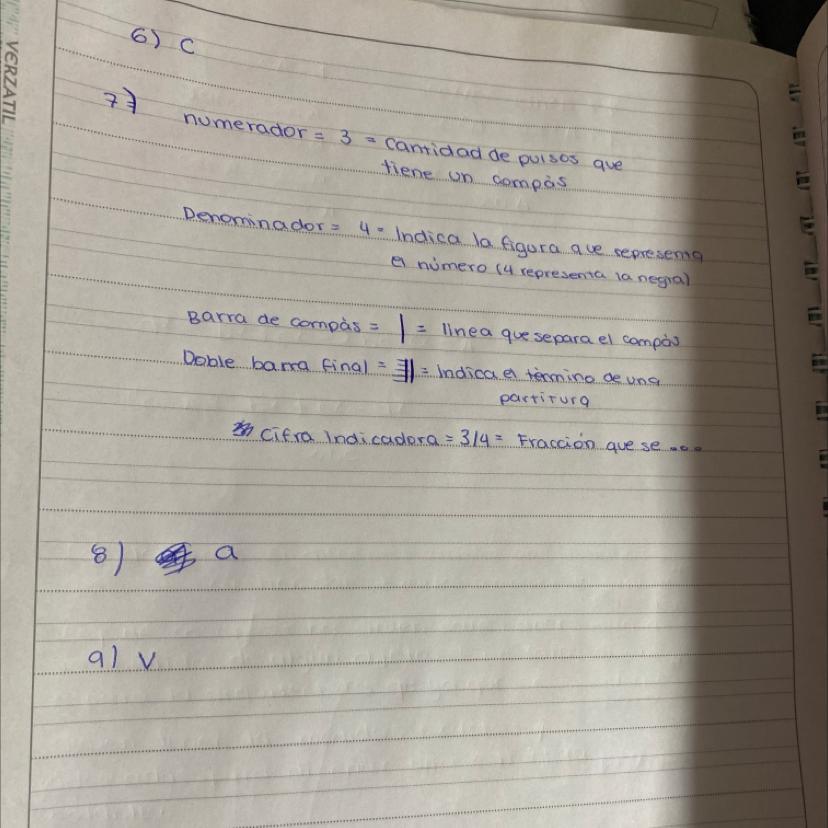 VERZATIL
6) C
7)
numerador = 3 = cantidad de pulsos que
tiene un compás
Denominador = 4 = Indica la figura que representa
el número (4 representa la negra)
Barra de compás = | = línea que separa el compás
Doble barra final = = Indica el término de una
partitura
Cifra Indicadora = 3/4 = Fracción que se ...
8) a
9) V